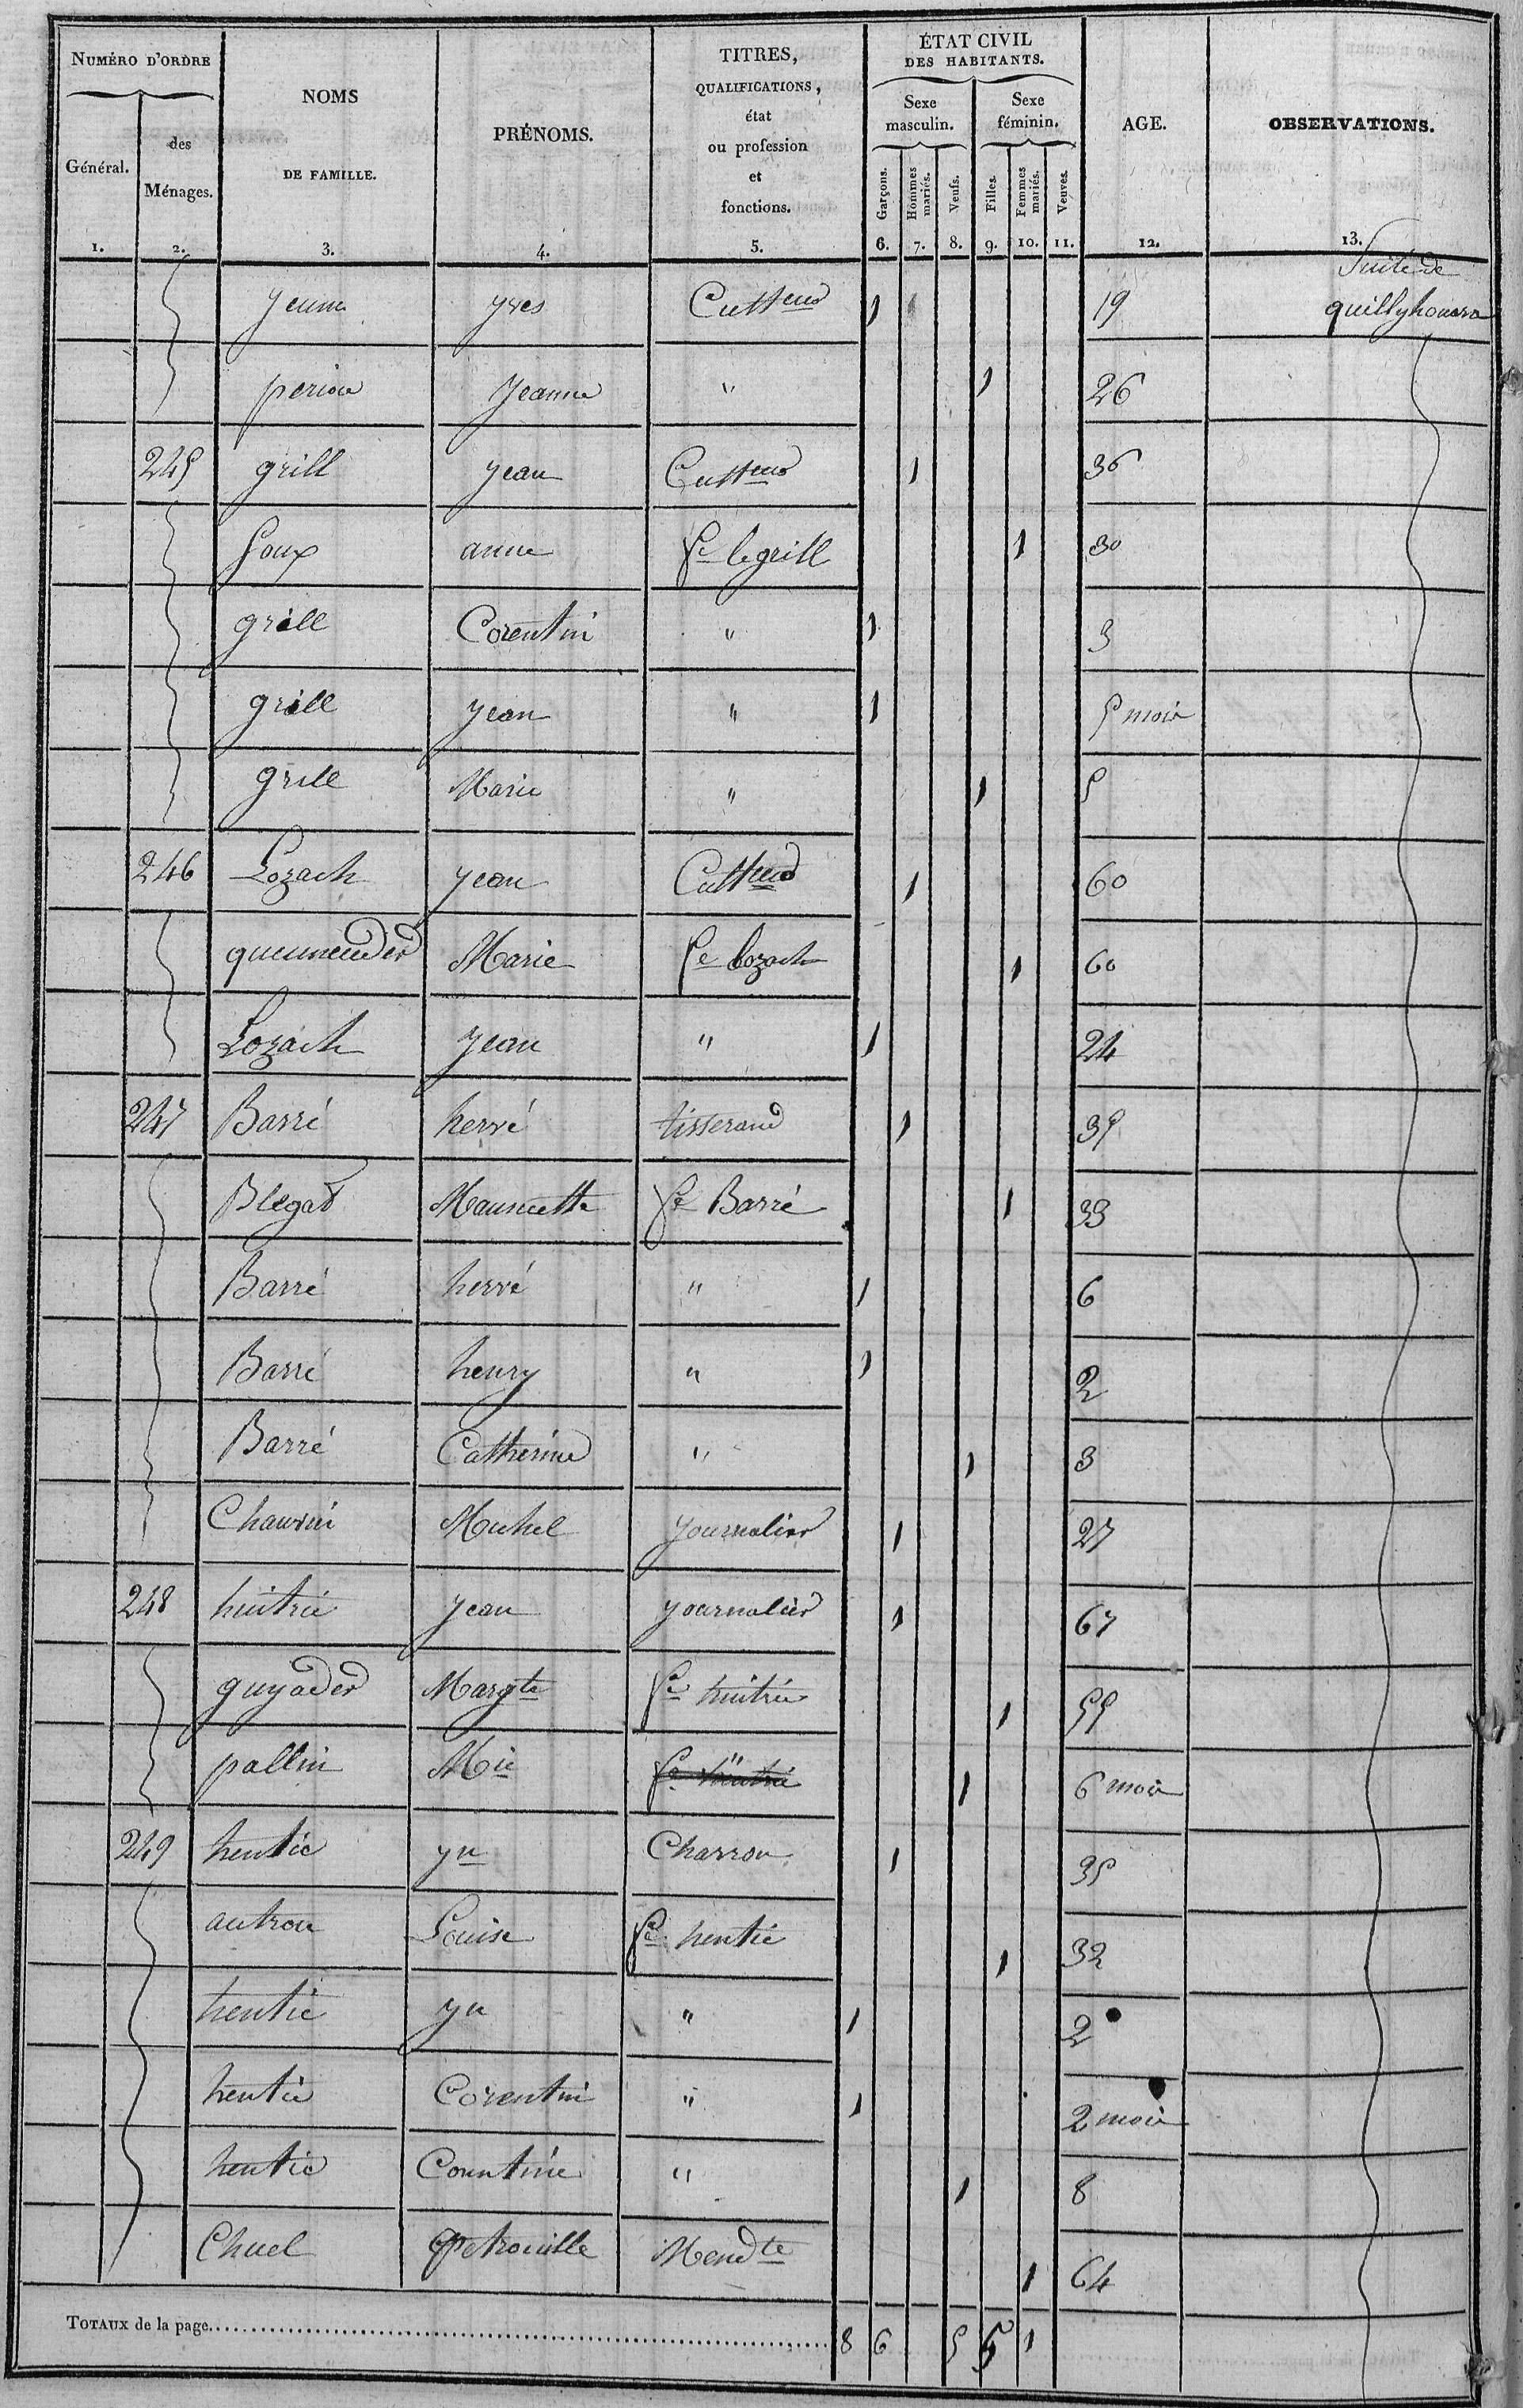 NUMÉRO D'ORDRE
Général.
des Ménages.
NOMS DE FAMILLE.
PRÉNOMS.
TITRES, QUALIFICATIONS, état ou profession et fonctions.
ÉTAT CIVIL DES HABITANTS.
Sexe masculin.
Sexe féminin.
Garçons.
Hommes mariés.
Veufs.
Filles.
Femmes mariés.
Veuves.
AGE.
OBSERVATIONS.
1. 2. 3. 4. 5. 6. 7. 8. 9. 10. 11. 12. 13.
Suite de
yves Cultteur 1 19 quillyhouarn
periou Jeanne " 1 26
245 grill yean Cultteur 1 36
goux anne fe le grill 1 30
grill Corentin " 1 3
grill yean " 1 5 mois
grill Marie " 1 5
246 Lozach yean Cultteur 1 60
queumender Marie fe Lozach 1 60
Lozach yean " 1 24
247 Barré hervé tisserand 1 35
Blegad Mauricette fe Barré 1 33
Barré hervé " 1 6
Barré henry " 1 2
Barré Catherine " 1 3
Chauvin Michel yournalier 1 27
248 huitric yean yournalier 1 67
guyader Margte fe huitric 1 55
pallin Mie " 1 6 mois
249 hentic yn Charron 1 35
autrou Louise fe hentic 1 32
hentic yn " 1 2
hentic Corentin " 1 2 mois
hentic Corentine " 1 8
Chuel Petronille Mendte 1 64
TOTAUX de la page 8 6 5 5 1